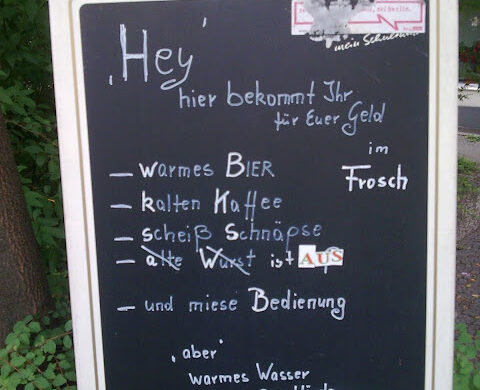 ‚Hey'
hier bekommt Ihr
für Euer Geld
im
Frosch
– warmes BIER
– kalten Kaffee
– scheiß Schnäpse
– alte Wurst ist AUS
– und miese Bedienung
‚aber'
warmes Wasser